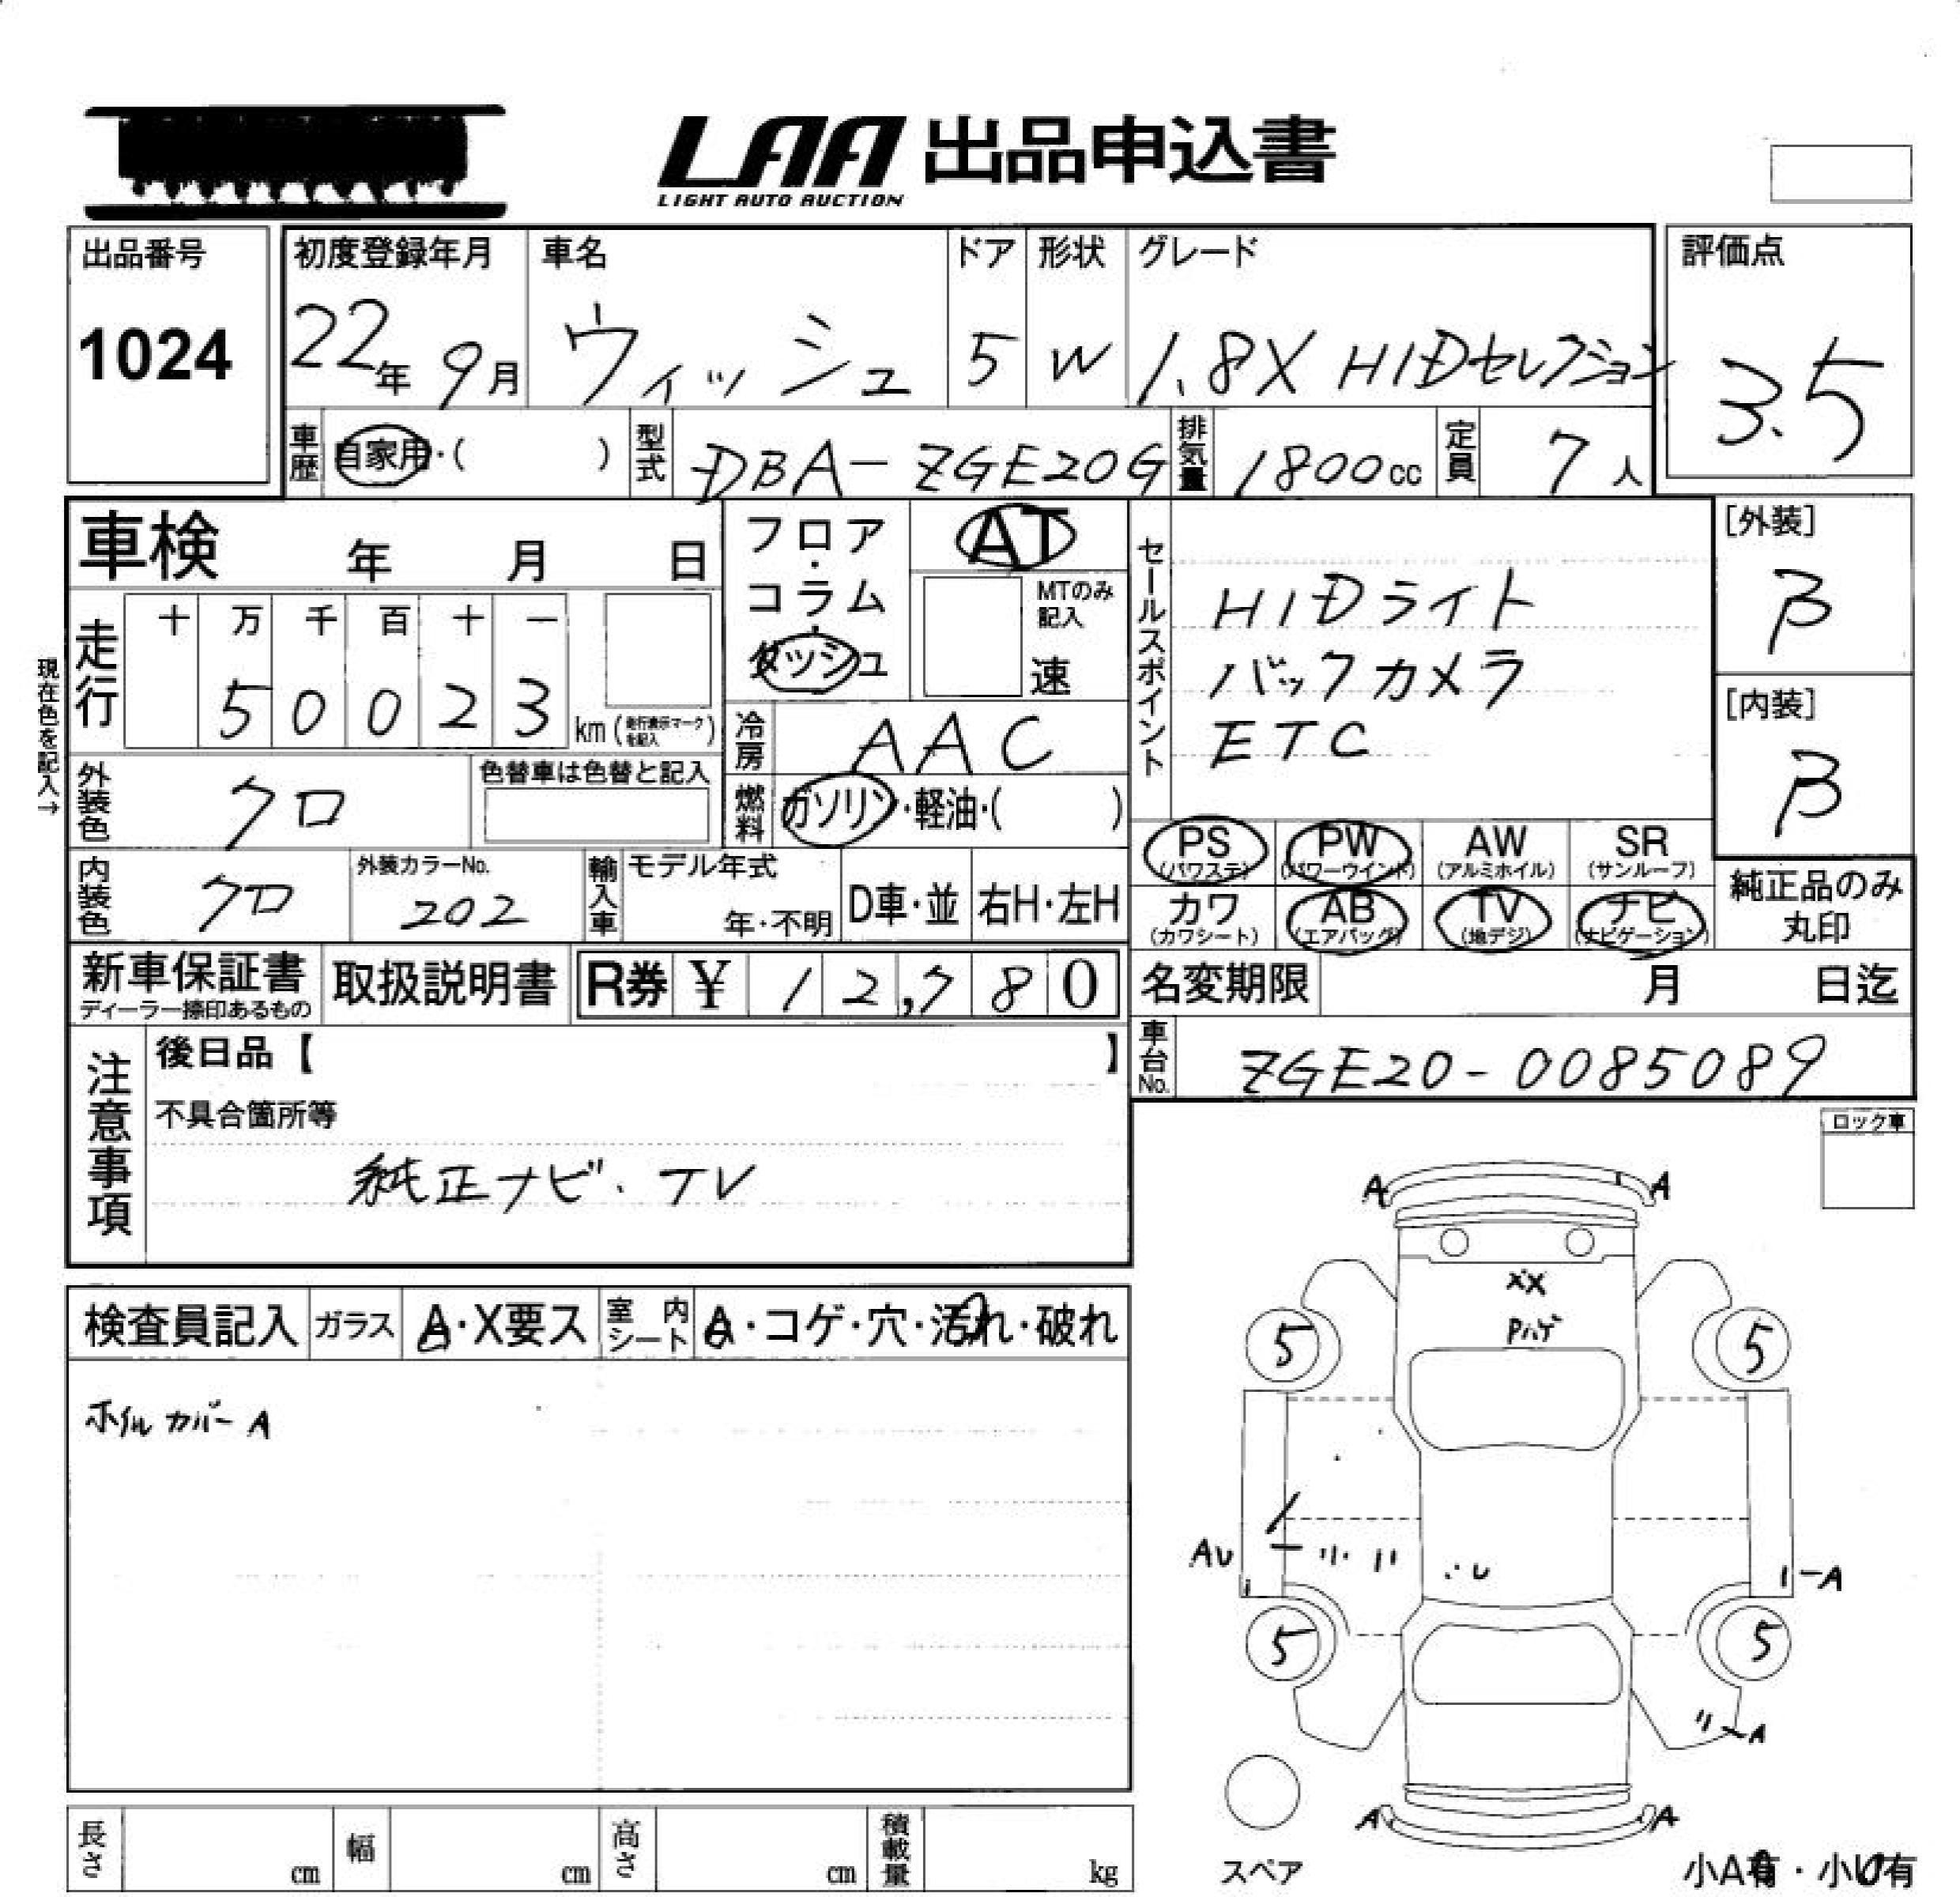 LAA 出品申込書
LIGHT AUTO AUCTION
出品番号
1024
初度登録年月
22年 9月
車名
ウィッシュ
ドア
5
形状
W
グレード
1.8X HIDセレクション
評価点
3.5
車歴
自家用・( )
型式
DBA-ZGE20G
排気量
1800cc
定員
7人
車検 年 月 日
フロア・
コラム・
ダッシュ
AT
MTのみ
記入
速
セールスポイント
HIDライト
バックカメラ
ETC
[外装]
β
[内装]
β
現在色を記入→
走行
十 万 千 百 十 一
5 0 0 2 3 km (走行表示マークを記入)
冷房
AAC
外装色
クロ
色替車は色替と記入
燃料
ガソリン・軽油・( )
PS
(パワステ)
PW
(パワーウインド)
AW
(アルミホイル)
SR
(サンルーフ)
カワ
(カワシート)
AB
(エアバッグ)
TV
(地デジ)
ナビ
(ナビゲーション)
純正品のみ
丸印
内装色
クロ
外装カラーNo.
202
輸入車
モデル年式
年・不明
D車・並
右H・左H
新車保証書
ディーラー捺印あるもの
取扱説明書
R券 ¥ 12,780
名変期限 月 日迄
車台No.
ZGE20-0085089
注意事項
後日品【 】
不具合箇所等
純正ナビ・TV
ロック車
検査員記入
ガラス
A・X要ス
室内シート
A・コゲ・穴・汚れ・破れ
ホイルカバーA
A A
XX
Pハゲ
5 5
AU
U
A
5 5
A
A A
スペア
小A有・小U有
長さ cm
幅 cm
高さ cm
積載量 kg